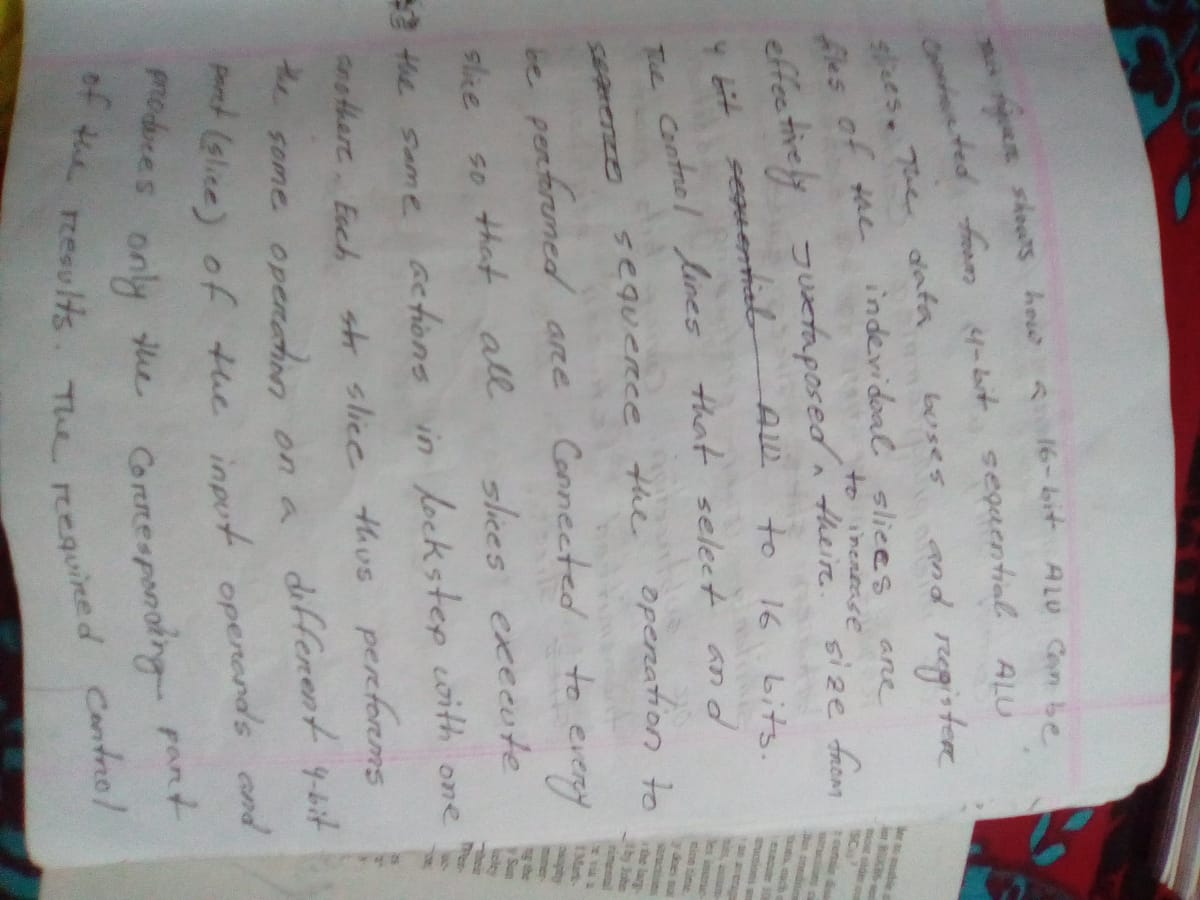 This figure shows how a 16-bit ALU Can be
Constructed from 4-bit sequential ALU
slices. The data buses and register
files of the indevidoal slices are
to increase
effectively Juxtaposed ^ their size from
4 bit sequential ALU to 16 bits.
The Control lines that select and
sequence sequence the operation to
be performed are Connected to every
slice so that all slices execute
the same actions in lockstep with one
another. Each str slice thus performs
the same operation on a different 4-bit
part (slice) of the input operands and
produces only the Corresponding part
of the results. The required Control